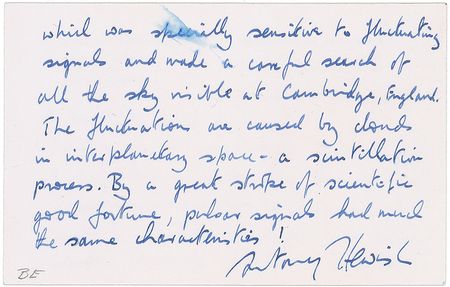 which was specially sensitive to fluctuating
signals and made a careful search of
all the sky visible at Cambridge, England.
The fluctuations are caused by clouds
in interplanetary space - a scintillation
process. By a great stroke of scientific
good fortune, pulsar signals had much
the same characteristics!
Antony Hewish
BE